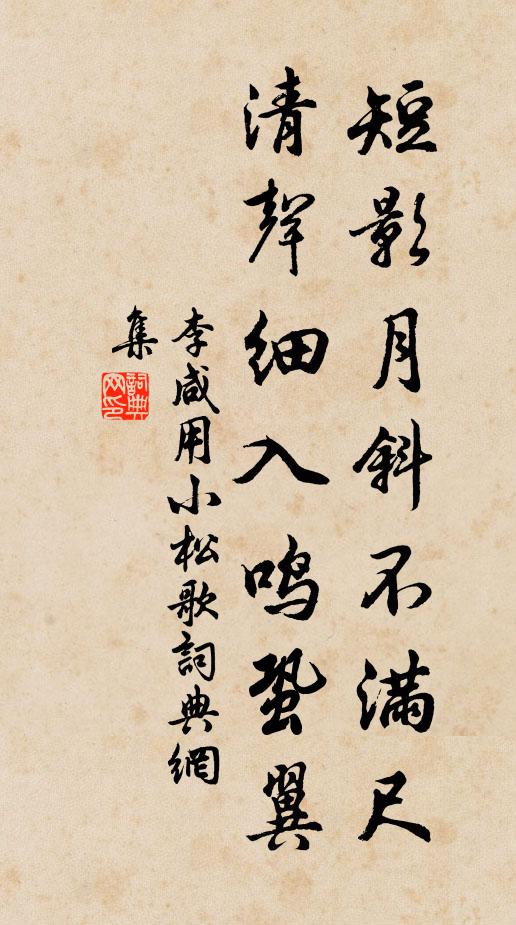 短影月斜不满尺
清聲细入鸣蛩翼
李咸用小松歌詞典網
集
詞典
网印